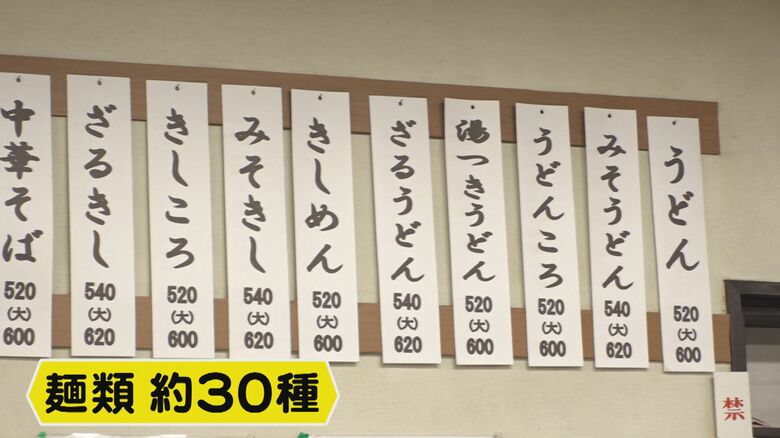 うどん
520
(大)
600
みそうどん
540
(大)
620
うどんころ
520
(大)
600
湯つきうどん
520
(大)
600
ざるうどん
540
(大)
620
きしめん
520
(大)
600
みそきし
540
(大)
620
きしころ
520
(大)
600
ざるきし
540
(大)
620
中華そば
520
(大)
600
禁
麺類 約30種